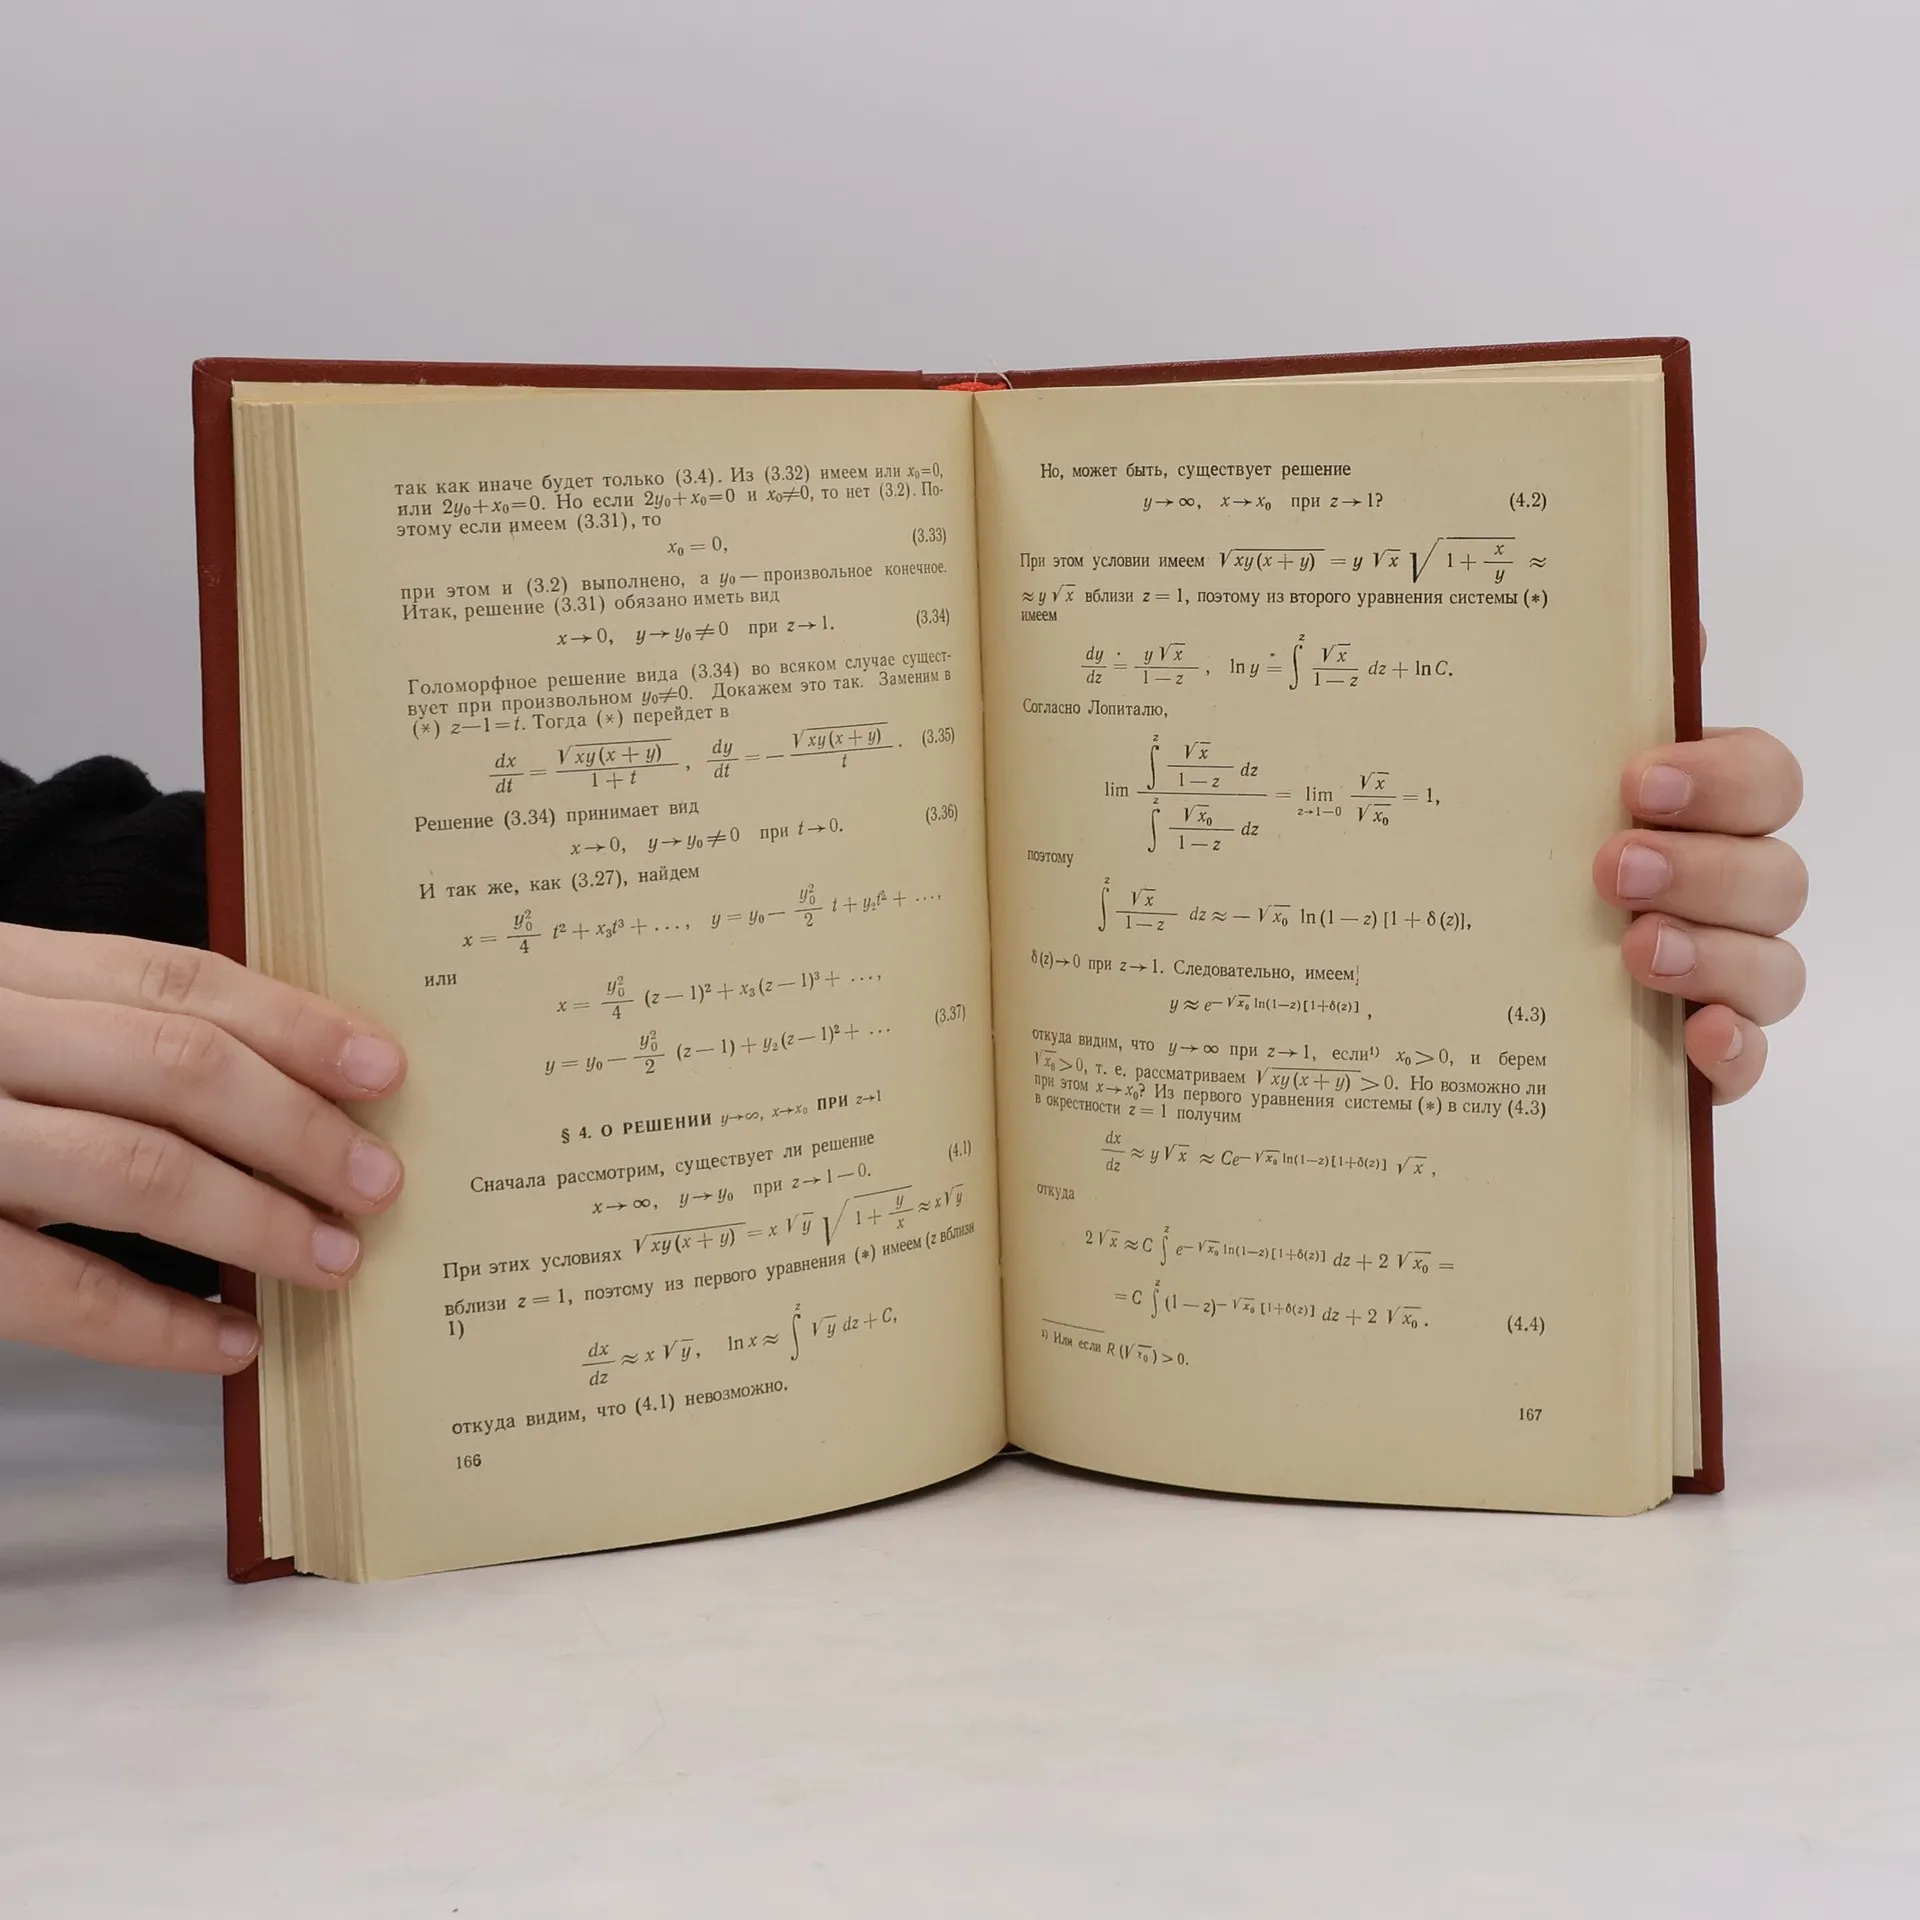 так как иначе будет только (3.4). Из (3.32) имеем или x₀=0,
или 2y₀+x₀=0. Но если 2y₀+x₀=0 и x₀≠0, то нет (3.2). По-
этому если имеем (3.31), то
x₀ = 0, (3.33)
при этом и (3.2) выполнено, а y₀ — произвольное конечное.
Итак, решение (3.31) обязано иметь вид
x→0, y→y₀≠0 при z→1. (3.34)
Голоморфное решение вида (3.34) во всяком случае сущест-
вует при произвольном y₀≠0. Докажем это так. Заменим в
(*) z—1=t. Тогда (*) перейдет в
dx/dt = √(xy(x+y))/(1+t), dy/dt = — √(xy(x+y))/t. (3.35)
Решение (3.34) принимает вид
x→0, y→y₀≠0 при t→0. (3.36)
И так же, как (3.27), найдем
x = y₀²/4 t² + x₃t³ + ..., y = y₀ — y₀²/2 t + y₂t² + ...,
или
x = y₀²/4 (z — 1)² + x₃(z — 1)³ + ...,
y = y₀ — y₀²/2 (z — 1) + y₂(z — 1)² + ... (3.37)
§ 4. О РЕШЕНИИ y→∞, x→x₀ ПРИ z→1
Сначала рассмотрим, существует ли решение
x→∞, y→y₀ при z→1—0. (4.1)
При этих условиях √(xy(x+y)) = x √y √(1 + y/x) ≈ x√y
вблизи z = 1, поэтому из первого уравнения (*) имеем (z вблизи
1)
dx/dz ≈ x √y, ln x ≈ ∫^z √y dz + C,
откуда видим, что (4.1) невозможно.
166
Но, может быть, существует решение
y→∞, x→x₀ при z→1? (4.2)
При этом условии имеем √(xy(x+y)) = y √x √(1 + x/y) ≈
≈ y √x вблизи z = 1, поэтому из второго уравнения системы (*)
имеем
dy/dz ≐ y √x/(1 — z), ln y ≐ ∫^z √x/(1 — z) dz + ln C.
Согласно Лопиталю,
lim (∫^z √x/(1 — z) dz)/(∫^z √x₀/(1 — z) dz) = lim z→1—0 √x/√x₀ = 1,
поэтому
∫^z √x/(1 — z) dz ≈ — √x₀ ln (1 — z) [1 + δ(z)],
δ(z)→0 при z→1. Следовательно, имеем
y ≈ e^(—√x₀ ln(1—z)[1+δ(z)]), (4.3)
откуда видим, что y→∞ при z→1, если¹⁾ x₀>0, и берем
√x₀>0, т. е. рассматриваем √(xy(x+y)) > 0. Но возможно ли
при этом x→x₀? Из первого уравнения системы (*) в силу (4.3)
в окрестности z = 1 получим
dx/dz ≈ y √x ≈ Ce^(—√x₀ ln(1—z)[1+δ(z)]) √x,
откуда
2 √x ≈ C ∫^z e^(—√x₀ ln(1—z)[1+δ(z)]) dz + 2 √x₀ =
= C ∫^z (1 — z)^(—√x₀ [1+δ(z)]) dz + 2 √x₀. (4.4)
¹⁾ Или если R (√x₀) > 0.
167